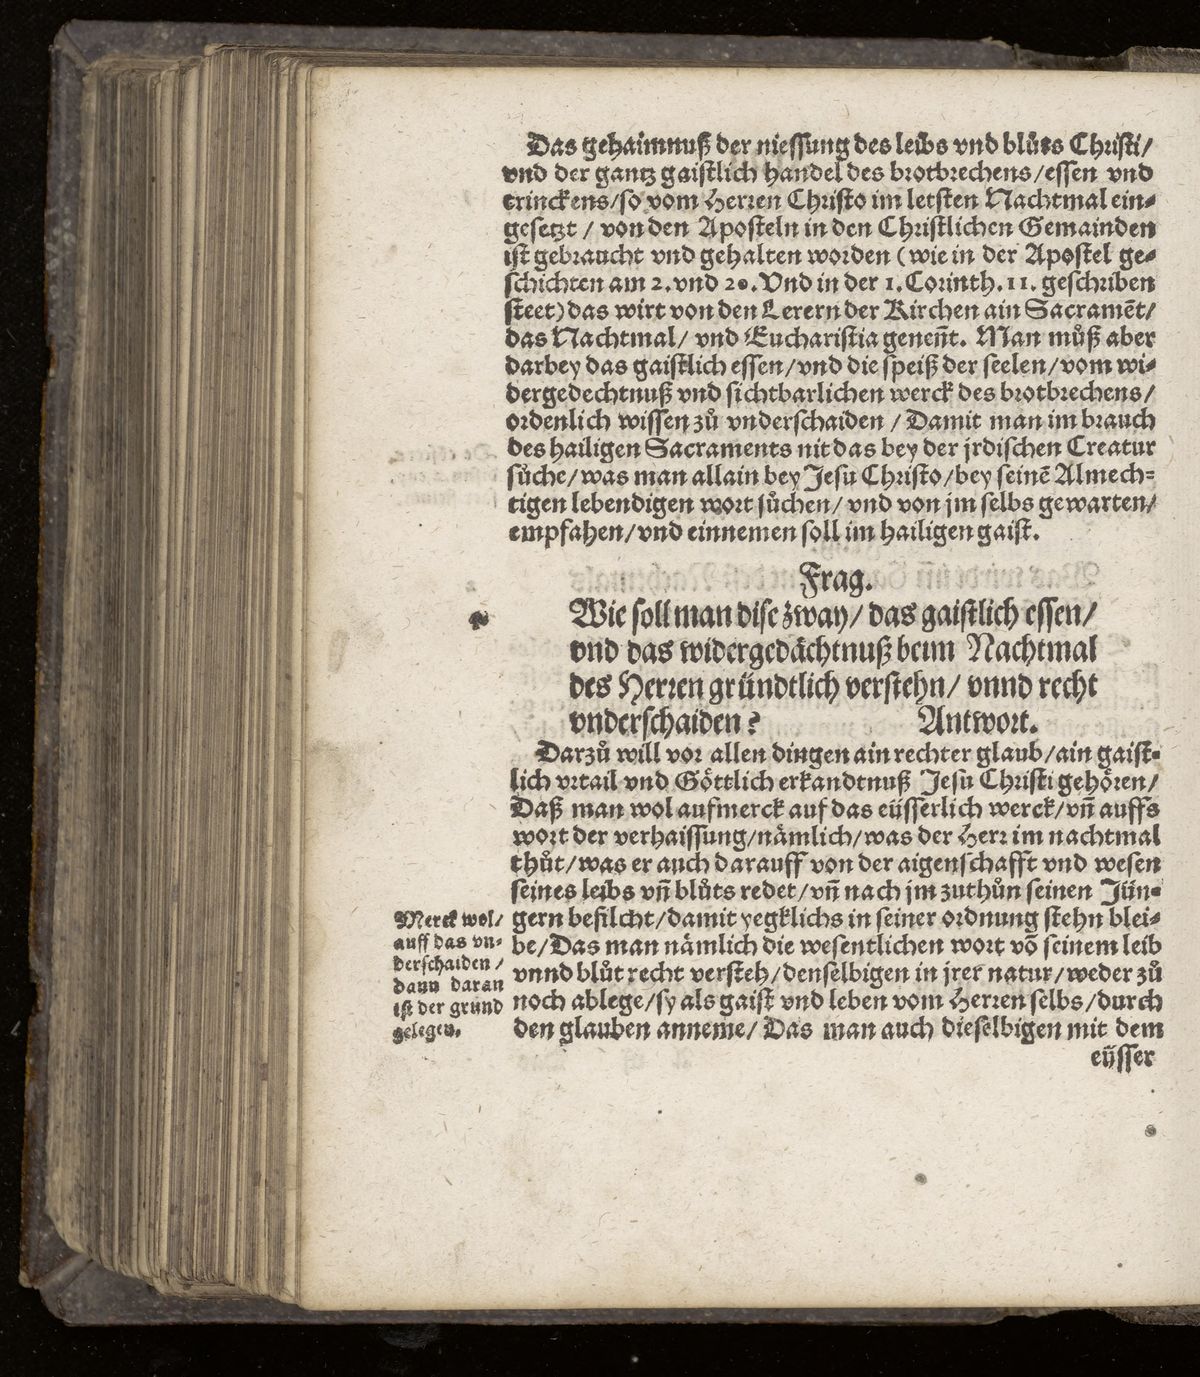 Das gehaimnuß der niessung des leibs vnd blůts Christi/
vnd der gantz gaistlich handel des brotbrechens/essen vnd
trinckens/so vom Herren Christo im letsten Nachtmal ein-
gesetzt / von den Aposteln in den Christlichen Gemainden
ist gebraucht vnd gehalten worden (wie in der Apostel ge-
schichten am 2. vnd 20. Vnd in der 1. Corinth. 11. geschriben
steet) das wirt von den Lerern der Kirchen ain Sacramēt/
das Nachtmal/ vnd Eucharistia geneñt. Man můß aber
darbey das gaistlich essen/vnd die speiß der seelen/vom wi-
dergedechtnuß vnd sichtbarlichen werck des brotbrechens/
ordenlich wissen zů vnderschaiden / Damit man im brauch
des hailigen Sacraments nit das bey der jrdischen Creatur
sůche/was man allain bey Jesu Christo/bey seinē Almech-
tigen lebendigen wort sůchen/ vnd von jm selbs gewarten/
empfahen/vnd einnemen soll im hailigen gaist.
Frag.
Wie soll man dise zway/ das gaistlich essen/
vnd das widergedächtnuß beim Nachtmal
des Herren gründtlich verstehn/ vnnd recht
vnderschaiden? Antwort.
Darzů will vor allen dingen ain rechter glaub/ain gaist-
lich vrtail vnd Göttlich erkandtnuß Jesu Christi gehören/
Daß man wol aufmerck auf das eüsserlich werck/vñ auffs
wort der verhaissung/nämlich/was der Herr im nachtmal
thůt/was er auch darauff von der aigenschafft vnd wesen
seines leibs vñ blůts redet/vñ nach jm zuthůn seinen Jün-
gern befilcht/damit yegklichs in seiner ordnung stehn blei-
be/Das man nämlich die wesentlichen wort vō seinem leib
vnnd blůt recht versteh/denselbigen in jrer natur/weder zů
noch ablege/sy als gaist vnd leben vom Herren selbs/durch
den glauben anneme/ Das man auch dieselbigen mit dem
eüsser
Merck wol/
auff das vn-
derschaiden/
dann daran
ist der grund
gelegen.